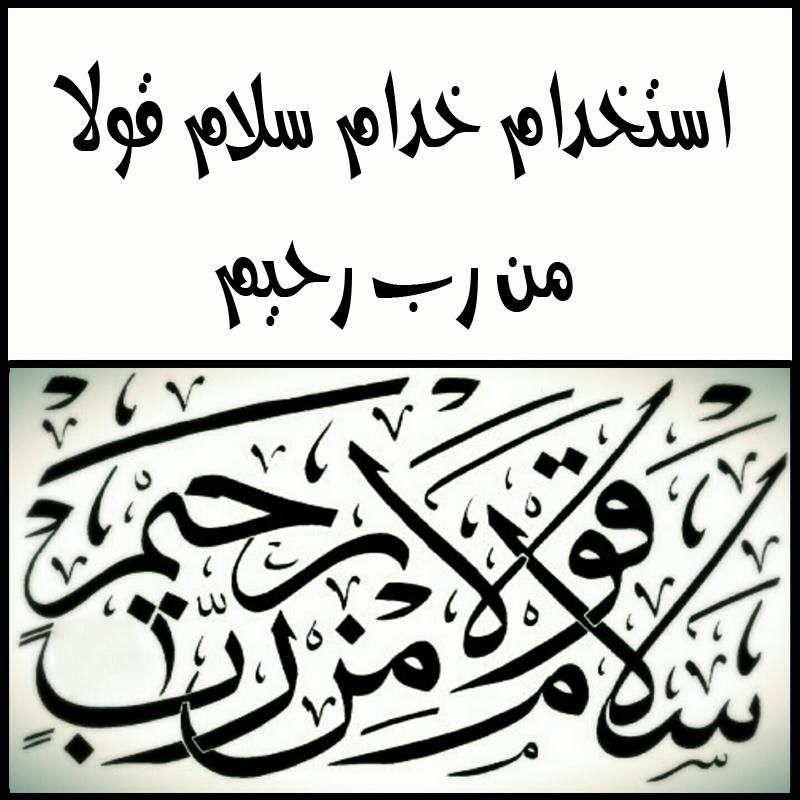 استخدام خدام سلام قولا
من رب رحيم
سلام قولا من رب رحيم